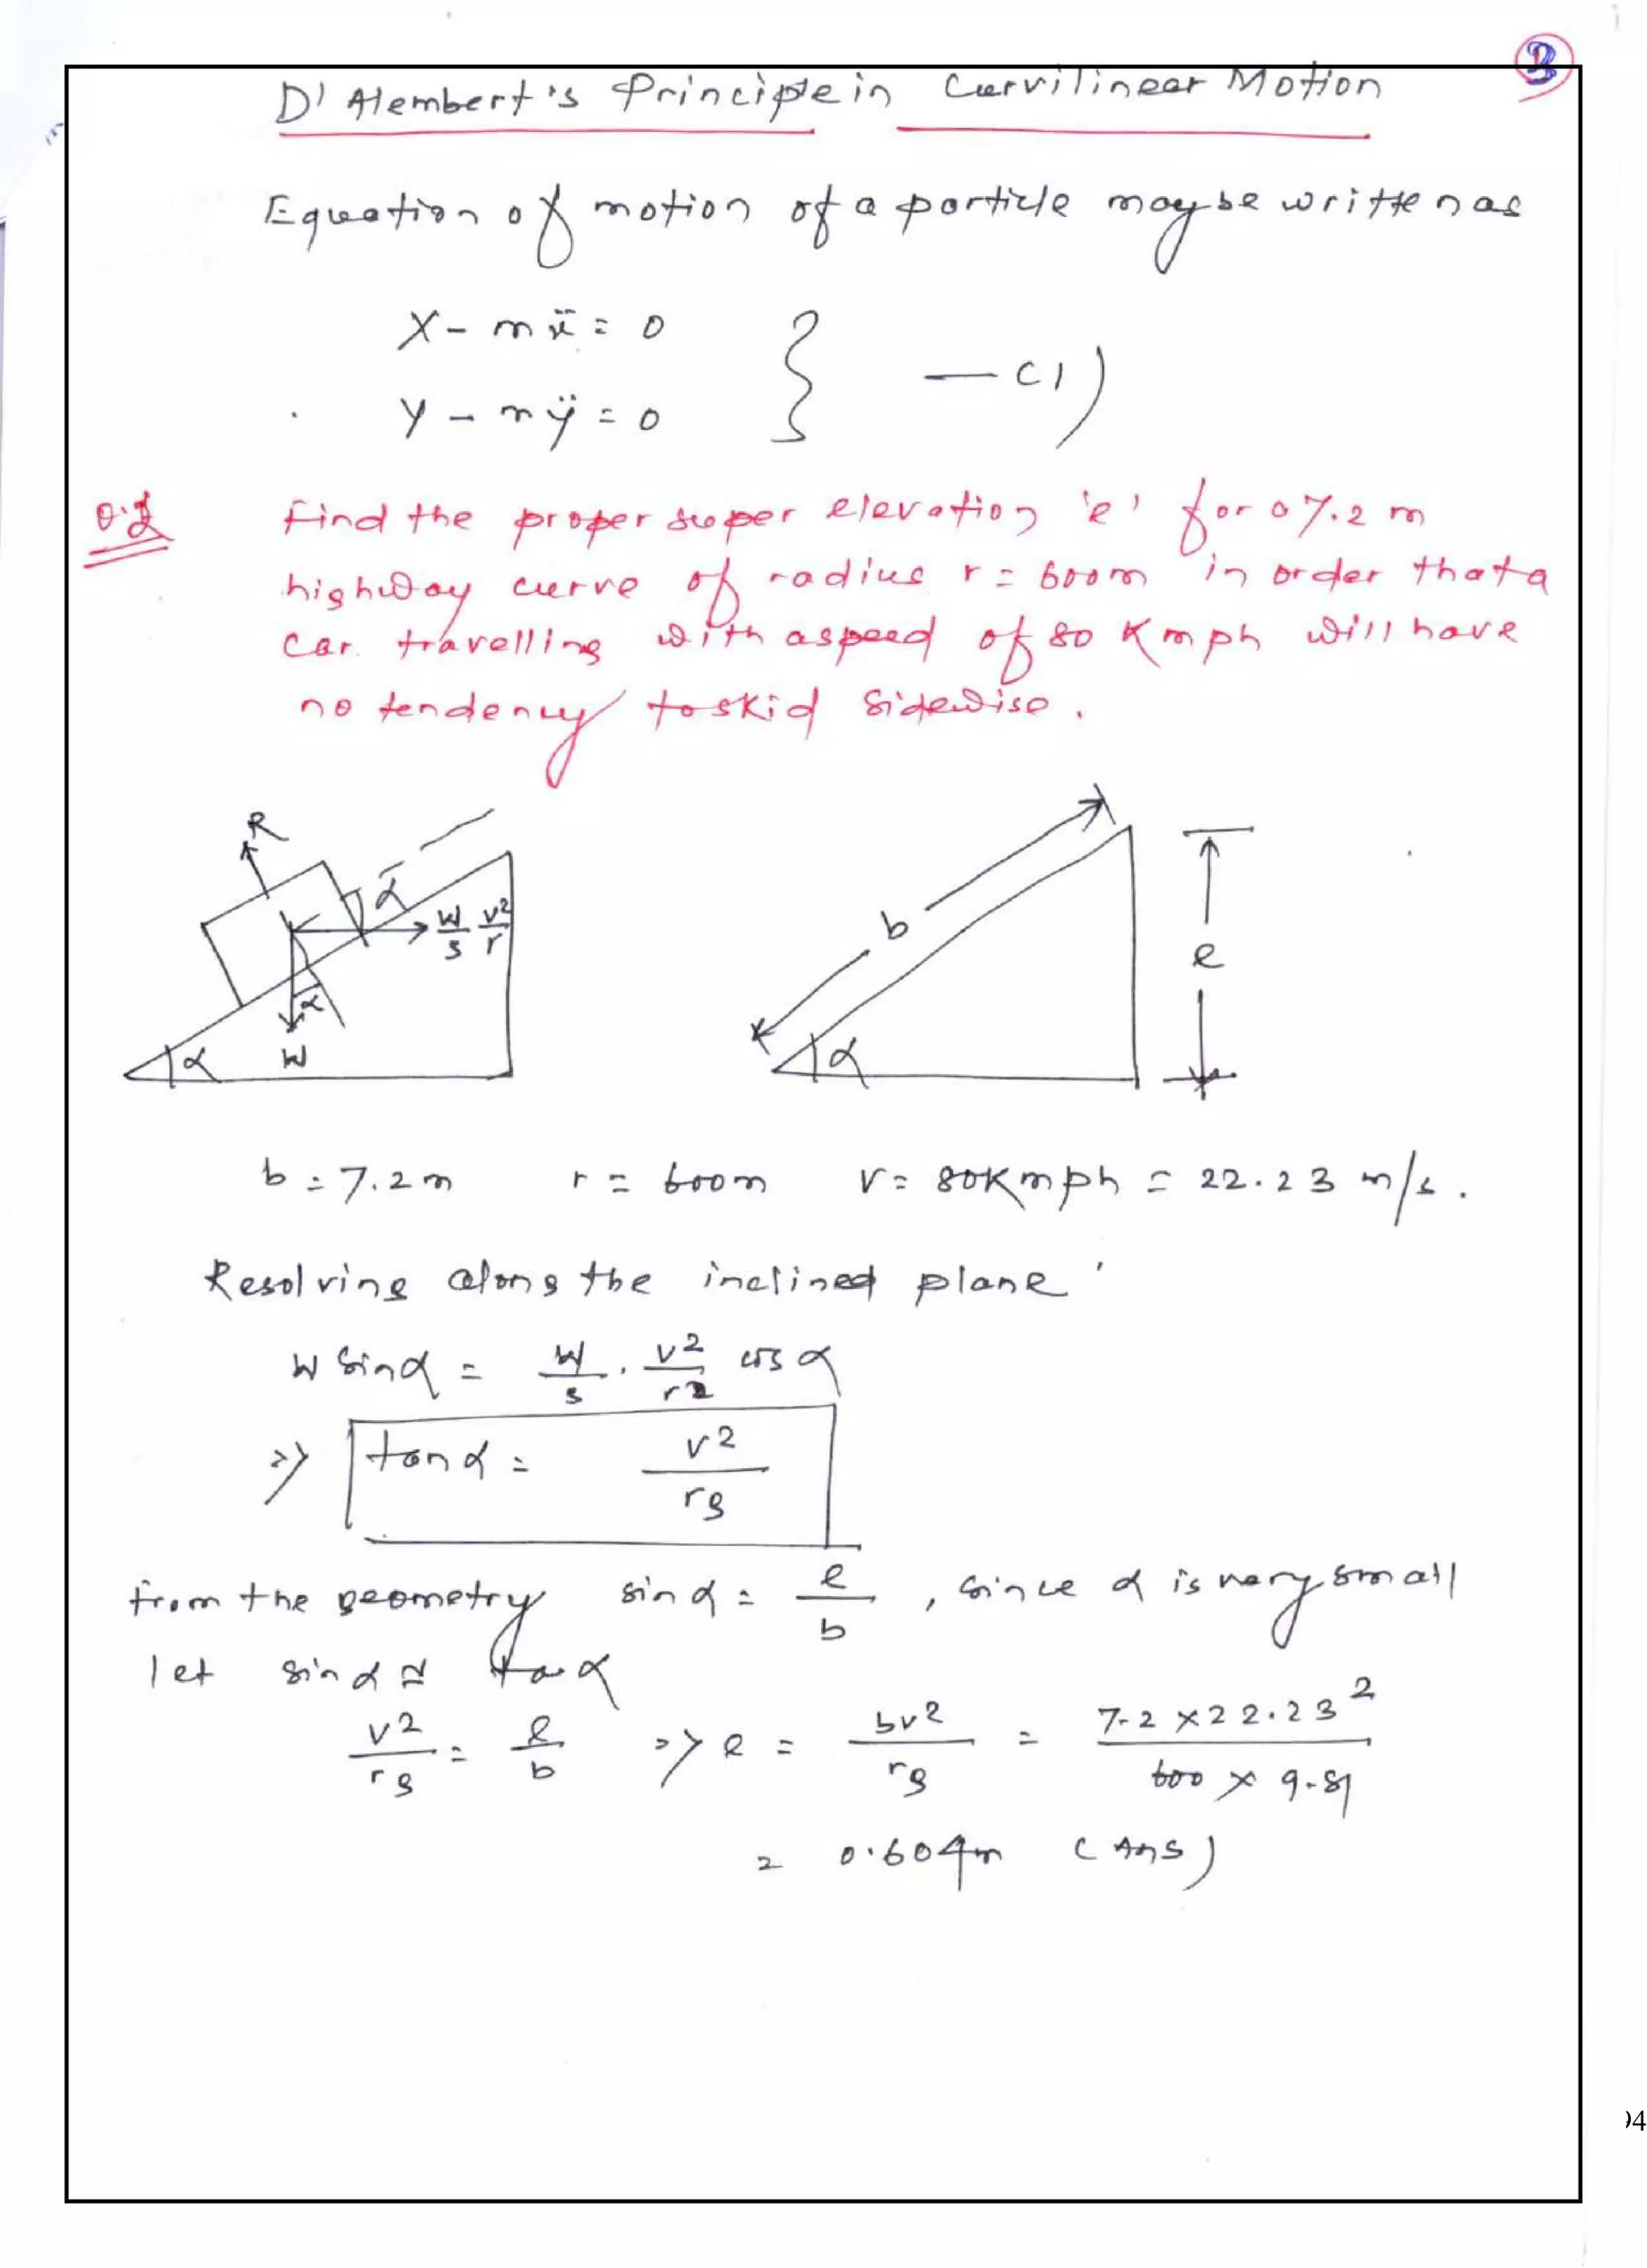 3
D'Alembert's Principle in Curvilinear Motion
Equation of motion of a particle may be written as
X - mẍ = 0
Y - mÿ = 0 } — (1)
Q.2 Find the proper super elevation 'e' for a 7.2 m
highway curve of radius r = 600m in order that a
car travelling with a speed of 80 Kmph will have
no tendency to skid sidewise.
R
α
W/g v²/r
α
α W
b
e
α
b = 7.2m r = 600m v = 80Kmph = 22.23 m/s.
Resolving along the inclined plane
W sinα = W/g . v²/r cos α
⇒ tanα = v²/rg
from the geometry sinα = e/b , since α is very small
let sinα ≅ tanα
v²/rg = e/b ⇒ e = bv²/rg = 7.2 × 22.23²/600 × 9.81
= 0.604m (Ans)
94